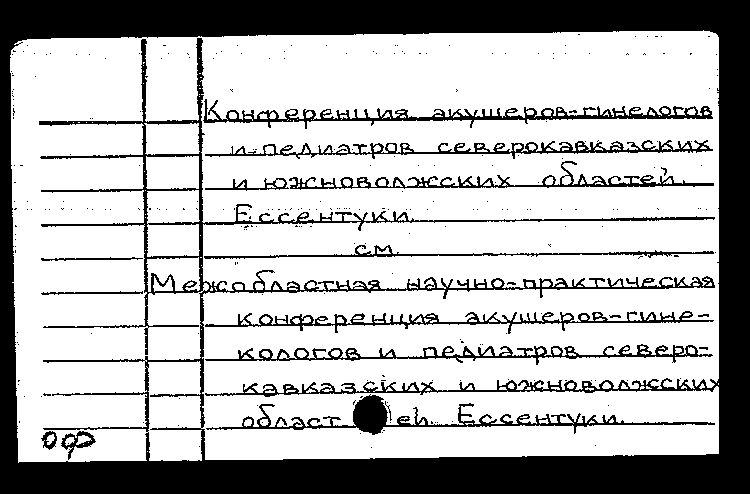 Конференция акушеров-гинелогов
и педиатров северокавказских
и южноволжских областей.
Ессентуки.
см.
Межобластная научно-практическая
конференция акушеров-гине-
кологов и педиатров северо-
кавказских и южноволжских
областей. Ессентуки.